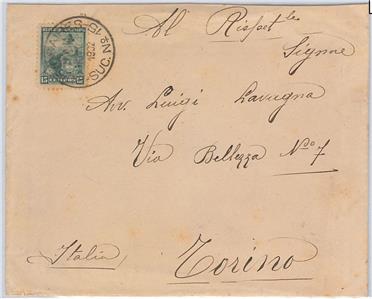 Al Rispett.le
Signore
Avv. Luigi Lavagna
Via Bellezza No 7
Italia
Torino
SUC.
15